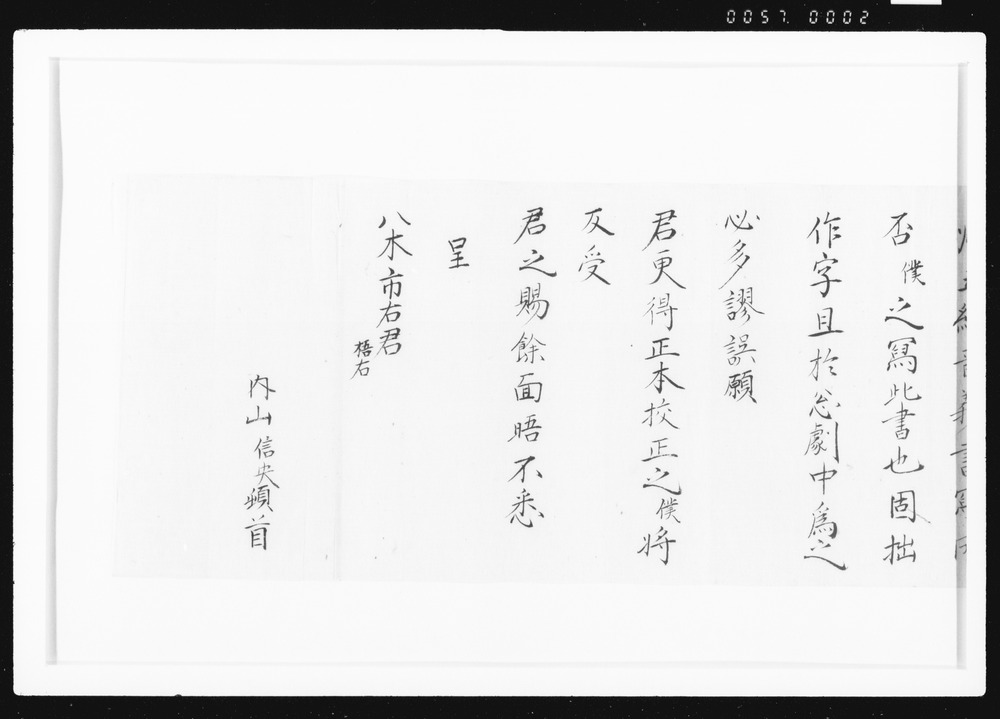 0057. 0002
否僕之冩此書也固拙
作字且於忩劇中爲之
必多謬誤願
君更得正本挍正之僕将
反受
君之賜餘面晤不悉
呈
八木市右君
梧右
内山信央頓首